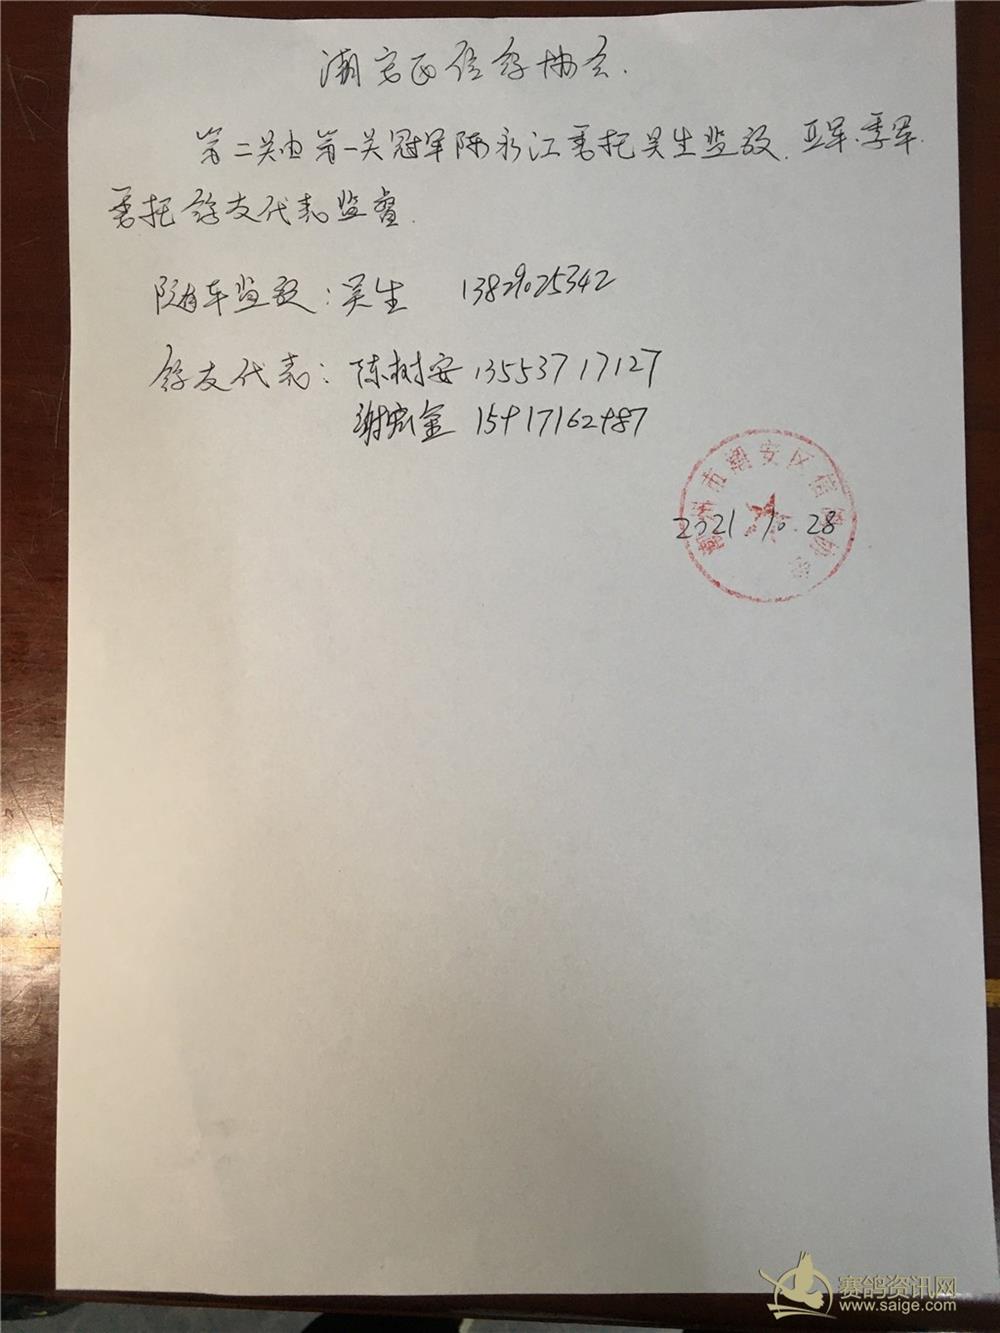 潮安区信鸽协会.
第二关由第一关冠军陈永江委托吴生监放.亚军.季军.
委托鸽友代表监督.
随车监放:吴生 13829025342
鸽友代表:陈树安 13553717127
谢宏金 15917162987
潮州市潮安区信鸽协会
2021.10.28
赛鸽资讯网
www.saige.com